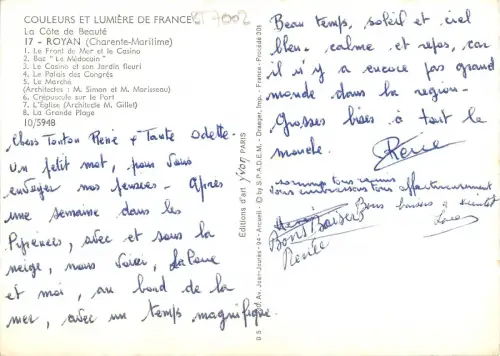 COULEURS ET LUMIÈRE DE FRANCE
CT 7002
La Côte de Beauté
17 - ROYAN (Charente-Maritime)
1. Le Front de Mer et le Casino
2. Bac "Le Médocain"
3. Le Casino et son Jardin fleuri
4. Le Palais des Congrès
5. Le Marché
(Architectes : M. Simon et M. Morisseau)
6. Crépuscule sur le Port
7. L'Église (Architecte M. Gillet)
8. La Grande Plage
10/5948
Chers Tonton René & Tante Odette.
Un petit mot, pour vous
envoyer nos pensées. Après
une semaine dans les
Pyrénées, avec et sous la
neige, nous voici,
et moi, au bord de la
mer, avec un temps magnifique.
Editions d'art yvon PARIS
D S Av. Jean-Jaurès - 94 - Arcueil - © by S.P.A.D.E.M. - Draeger, Imp. - France - Procédé 301
Beau temps, soleil et ciel
bleu. calme et repos, car
il n'y a encore pas grand
monde dans la région.
Grosses bises à tout le
monde.
Renée
sommes tous réunis
vous embrassons tous affectueusement
Bons baisers à bientôt
Bons Baisers
Renée